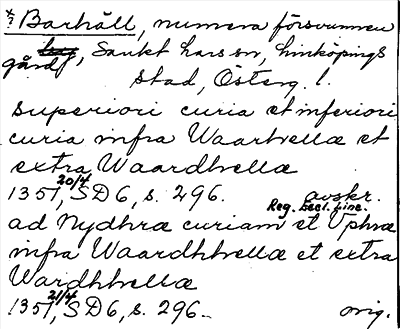 *? Barhäll, numera försvunnen
gård, Sankt Lars sn, Linköpings
stad, Österg. l.
superiori curia et inferiori
curia infra Waartvellæ et
extra Waardhvellæ
1351 20/4, SD 6, s. 296. avskr.
Reg. eccl. linc.
ad Nydhræ curiam et Vphræ
infra Waardhhvellæ et extra
Wardhhvellæ
1351 21/4, SD 6, s. 296. orig.